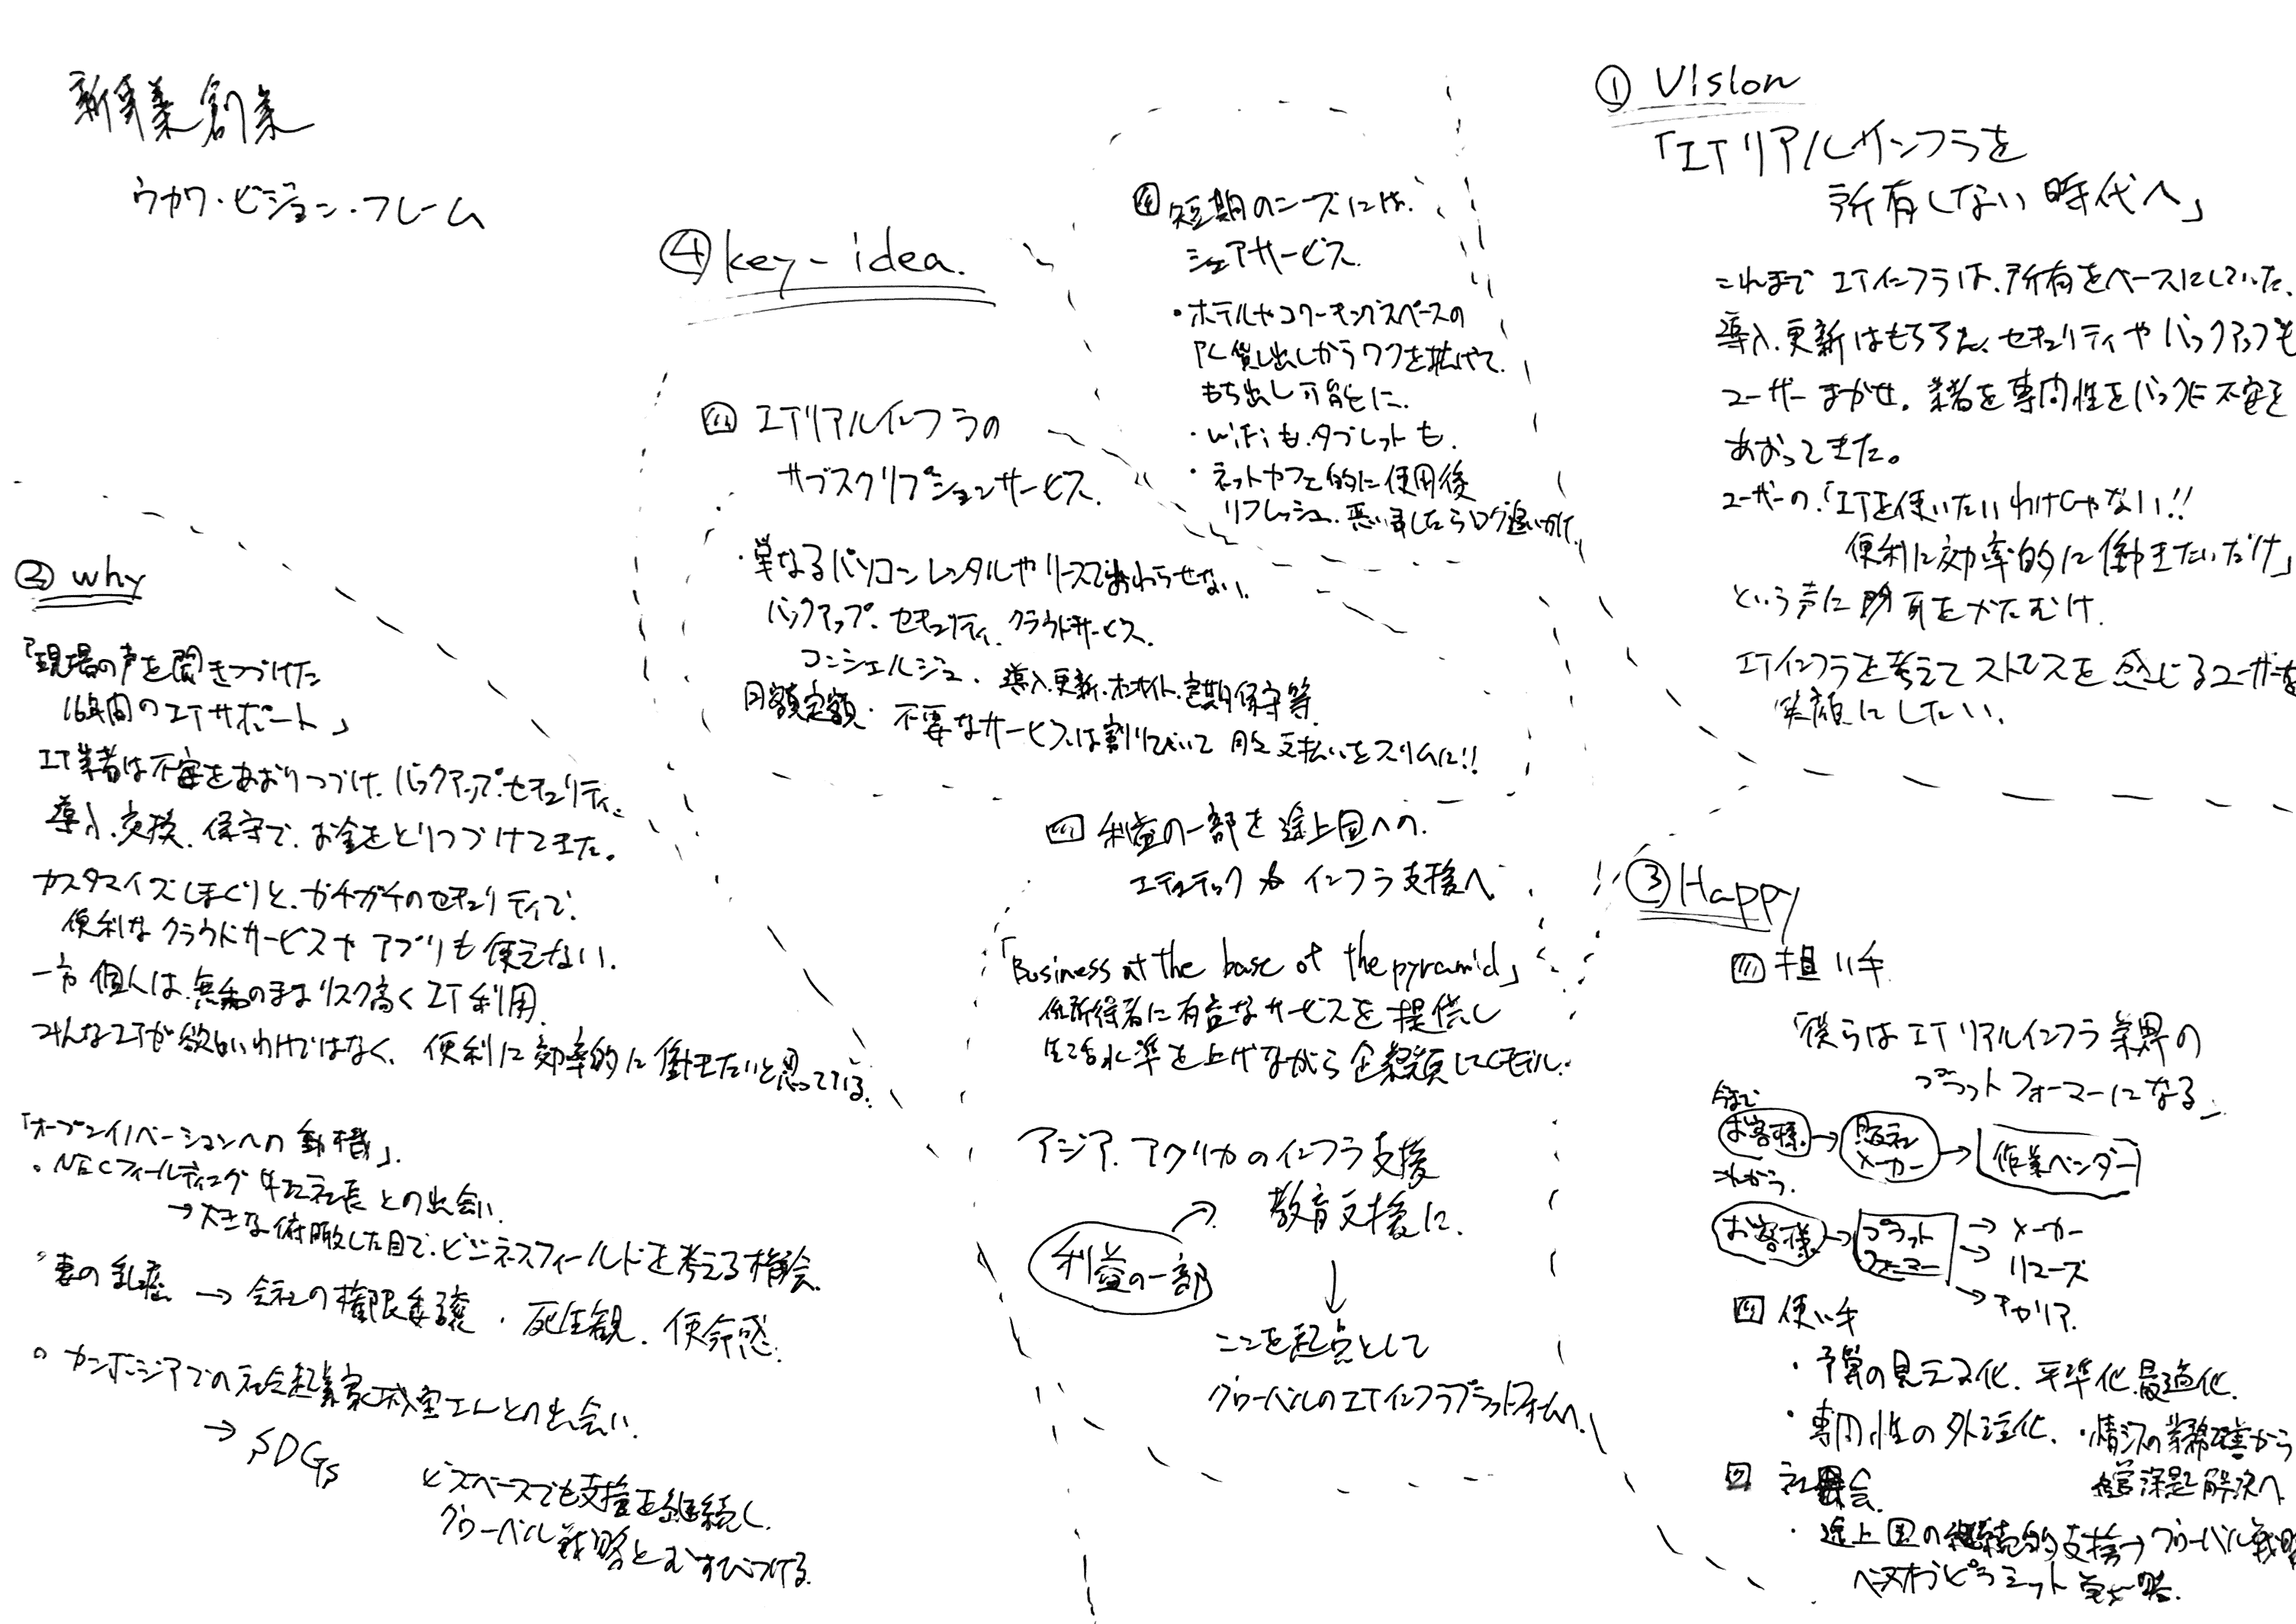 新事業創業
ウカワ・ビジョン・フレーム
① Vision
「ITリアルインフラを
所有しない時代へ」
これまで ITインフラは、所有をベースにしていた。
導入、更新はもちろん、セキュリティや バックアップも
ユーザーまかせ。業者を専門性をバックに不安を
あおってきた。
ユーザーの、「ITを使いたいわけじゃない!!
便利に効率的に働きたいだけ」
という声に 耳をかたむけ、
ITインフラを考えてストレスを感じるユーザーを
笑顔にしたい。
② why
「現場の声を聞きつづけた
16年間のITサポート」
IT業者は不安をあおりつづけ、バックアップ、セキュリティ、
導入、交換、保守で、お金をとりつづけてきた。
カスタマイズしまくりと、ガチガチのセキュリティで、
便利なクラウドサービスや アプリも使えない。
一方 個人は、無知のままリスク高くIT利用。
みんなITが欲しいわけではなく、便利に効率的に働きたいと思っている。
「オープンイノベーションへの動機」
・NECフィールディング 社長との出会い。
→大きな俯瞰した目で、ビジネスフィールドを考える機会。
・妻の乳癌 → 会社の権限委譲・死生観、使命感。
・カンボジアでの社会起業家 さんとの出会い。
→ SDGs
ビズベースでも支援を継続し、
グローバル戦略とむすびつける。
③ Happy
担い手
「僕らはITリアルインフラ業界の
プラットフォーマーになる」
今まで
お客様→販社 メーカー→作業ベンダー
これから
お客様→プラットフォーマー→メーカー
→リユース
→キャリア
使い手
・予算の見える化、平準化、最適化。
・専門性の外注化、・情シスの業務改善から
経営課題解決へ
社会
・途上国の継続的支援→グローバル戦略
ベースオブピラミット戦略
④ key-idea.
ITリアルインフラの
サブスクリプションサービス。
・単なるパソコンレンタルやリースでおわらせない。
バックアップ、セキュリティ、クラウドサービス、
コンシェルジュ、導入、更新、オンサイト、定期保守等
月額定額・不要なサービスは割りびいて 支払いをスリムに!!
短期のニーズには、
シェアサービス。
・ホテルやコワーキングスペースの
PC貸し出しからワクを拡げて、
もち出し可能に。
・WiFiも、タブレットも。
・ネットカフェ的に使用後
リフレッシュ、悪い事したらログ追いかけ。
利益の一部を途上国への、
エデュテック & インフラ支援へ
「Business at the base of the pyramid」
低所得者に有益なサービスを提供し
生活水準を上げながら企業 モデル。
アジア、アフリカのインフラ支援
教育支援に。
利益の一部
ここを起点として
グローバルのITインフラプラットフォームへ。